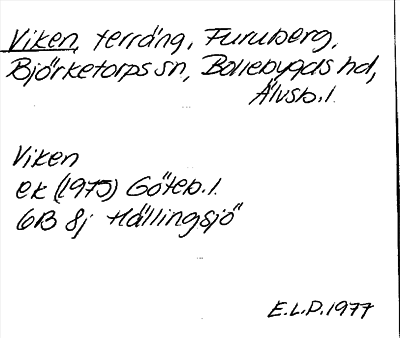 Viken, terräng, Furuberg,
Björketorps sn, Bollebygds hd,
Älvsb. l.
Viken
ek (1975) Göteb. l.
6B 8j Hällingsjö
E.L.P. 1977